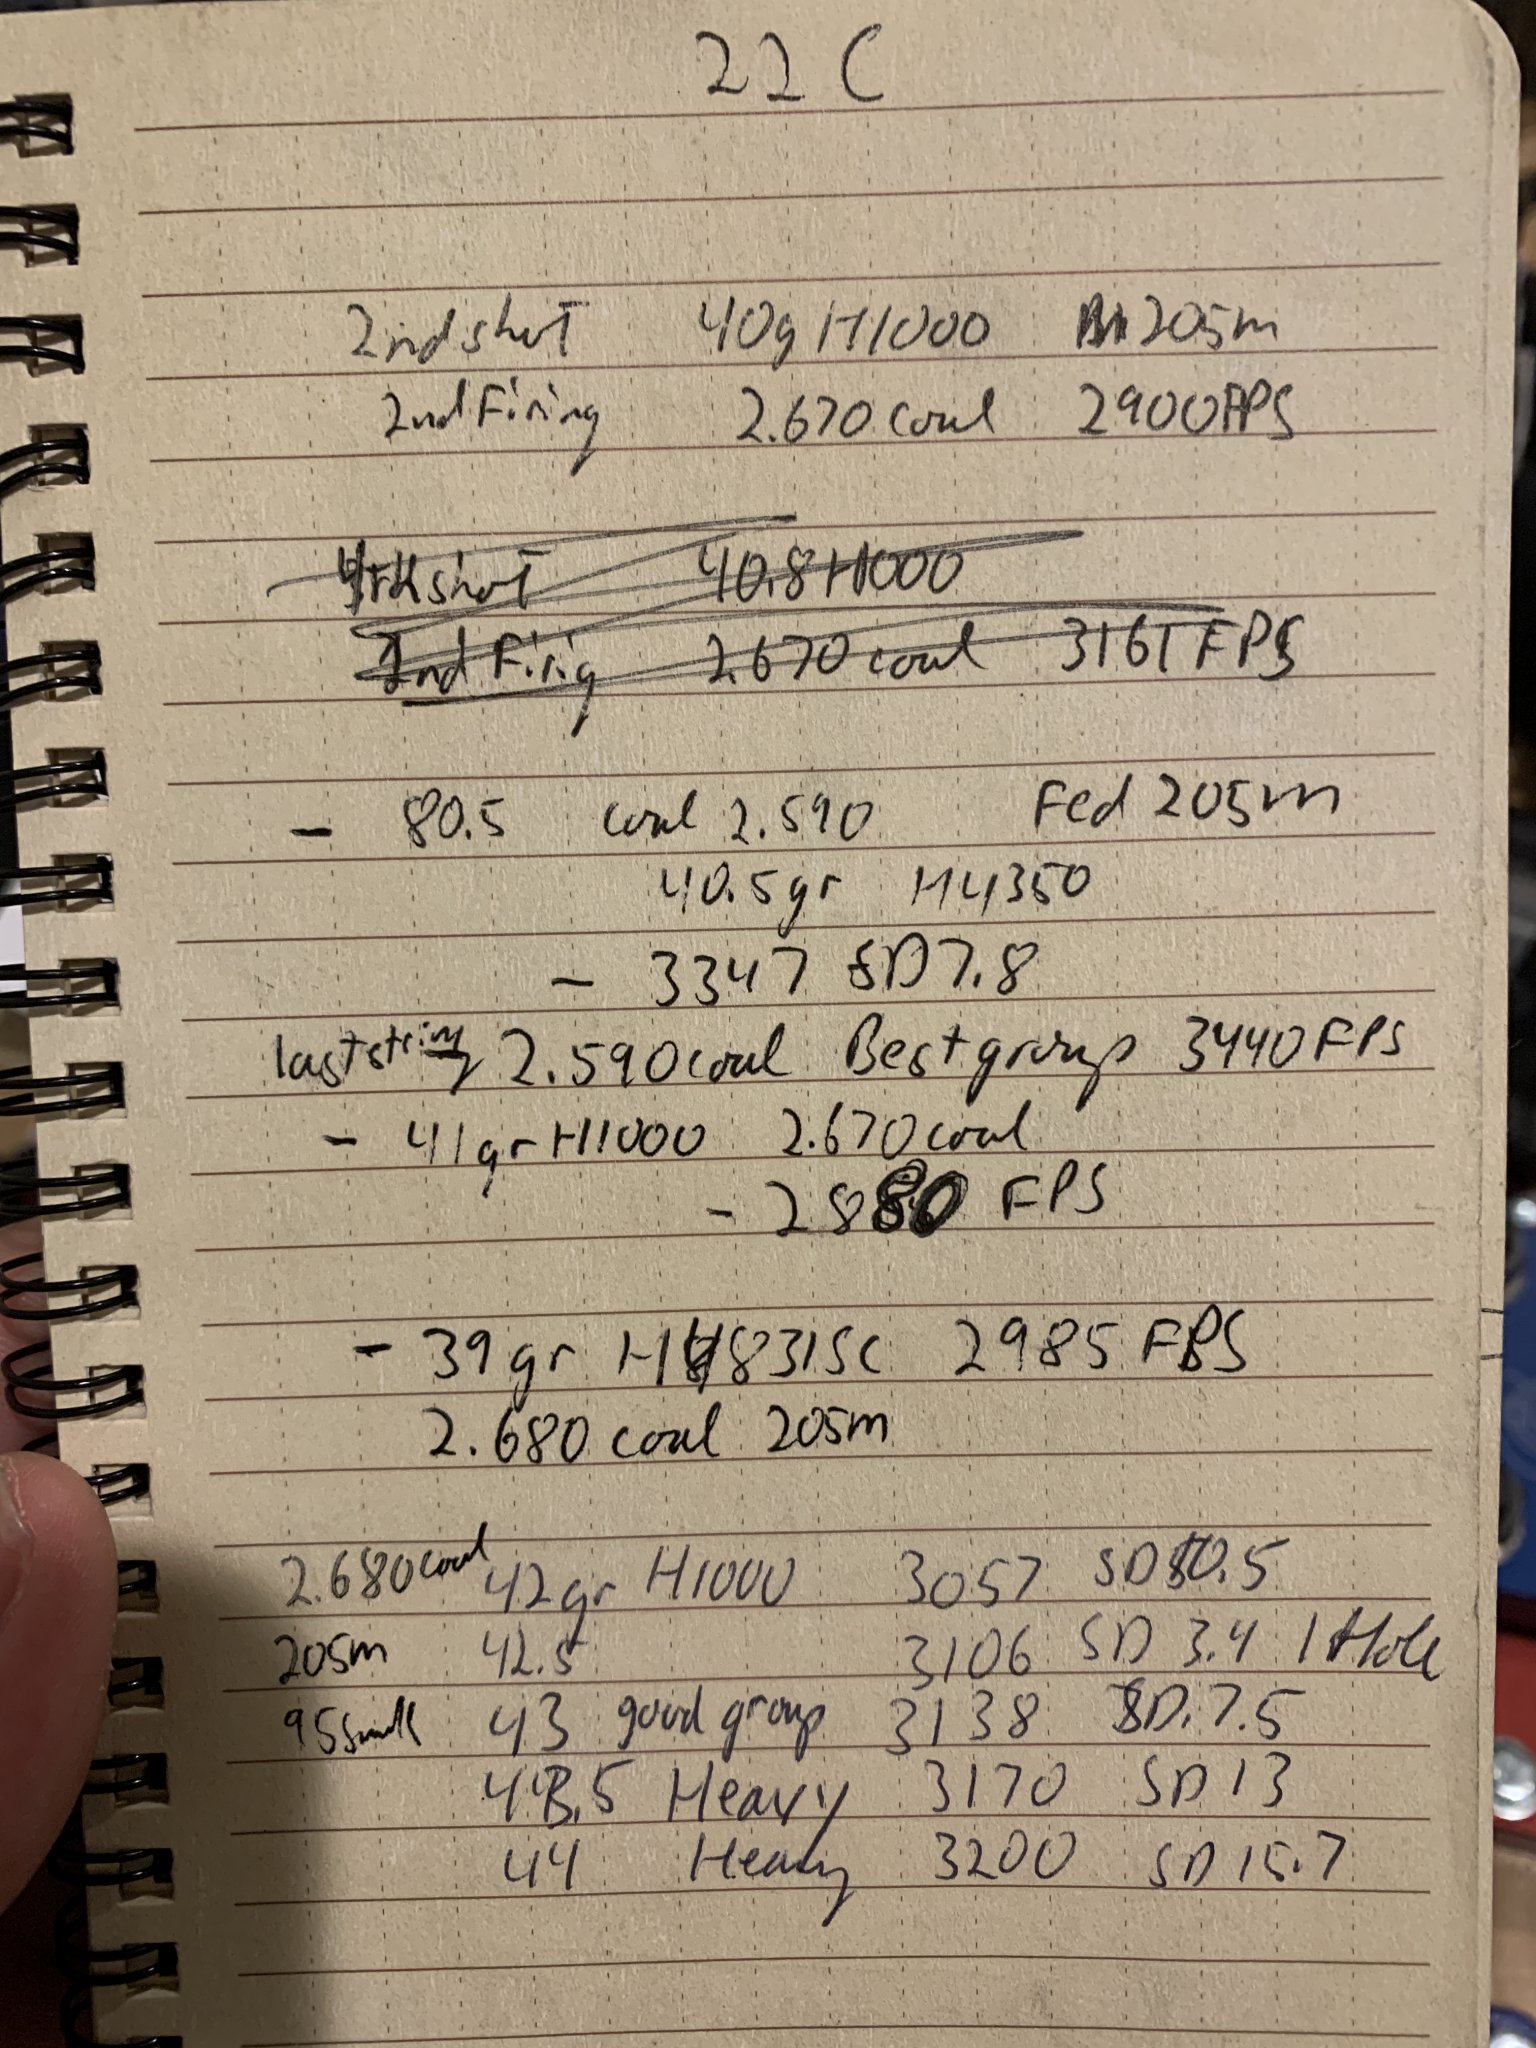 22 C
2nd shot 40g H1000 205m
2nd Firing 2.670 coal 2900 FPS
4th shot 40.8 H1000
2nd Firig 2.670 coal 3161 FPS
- 80.5 coal 2.590 Fed 205m
40.5gr H4350
- 3347 SD 7.8
last string 2.590 coal Best group 3440 FPS
- 41gr H1000 2.670 coal
- 2880 FPS
- 39 gr H4831SC 2985 FPS
2.680 coal 205m
2.680 coal 42gr H1000 3057 SD 10.5
205m 42.5 3106 SD 3.4 1 Hole
95 43 good group 3138 SD. 7.5
43.5 Heavy 3170 SD 13
44 Heavy 3200 SD 15.7